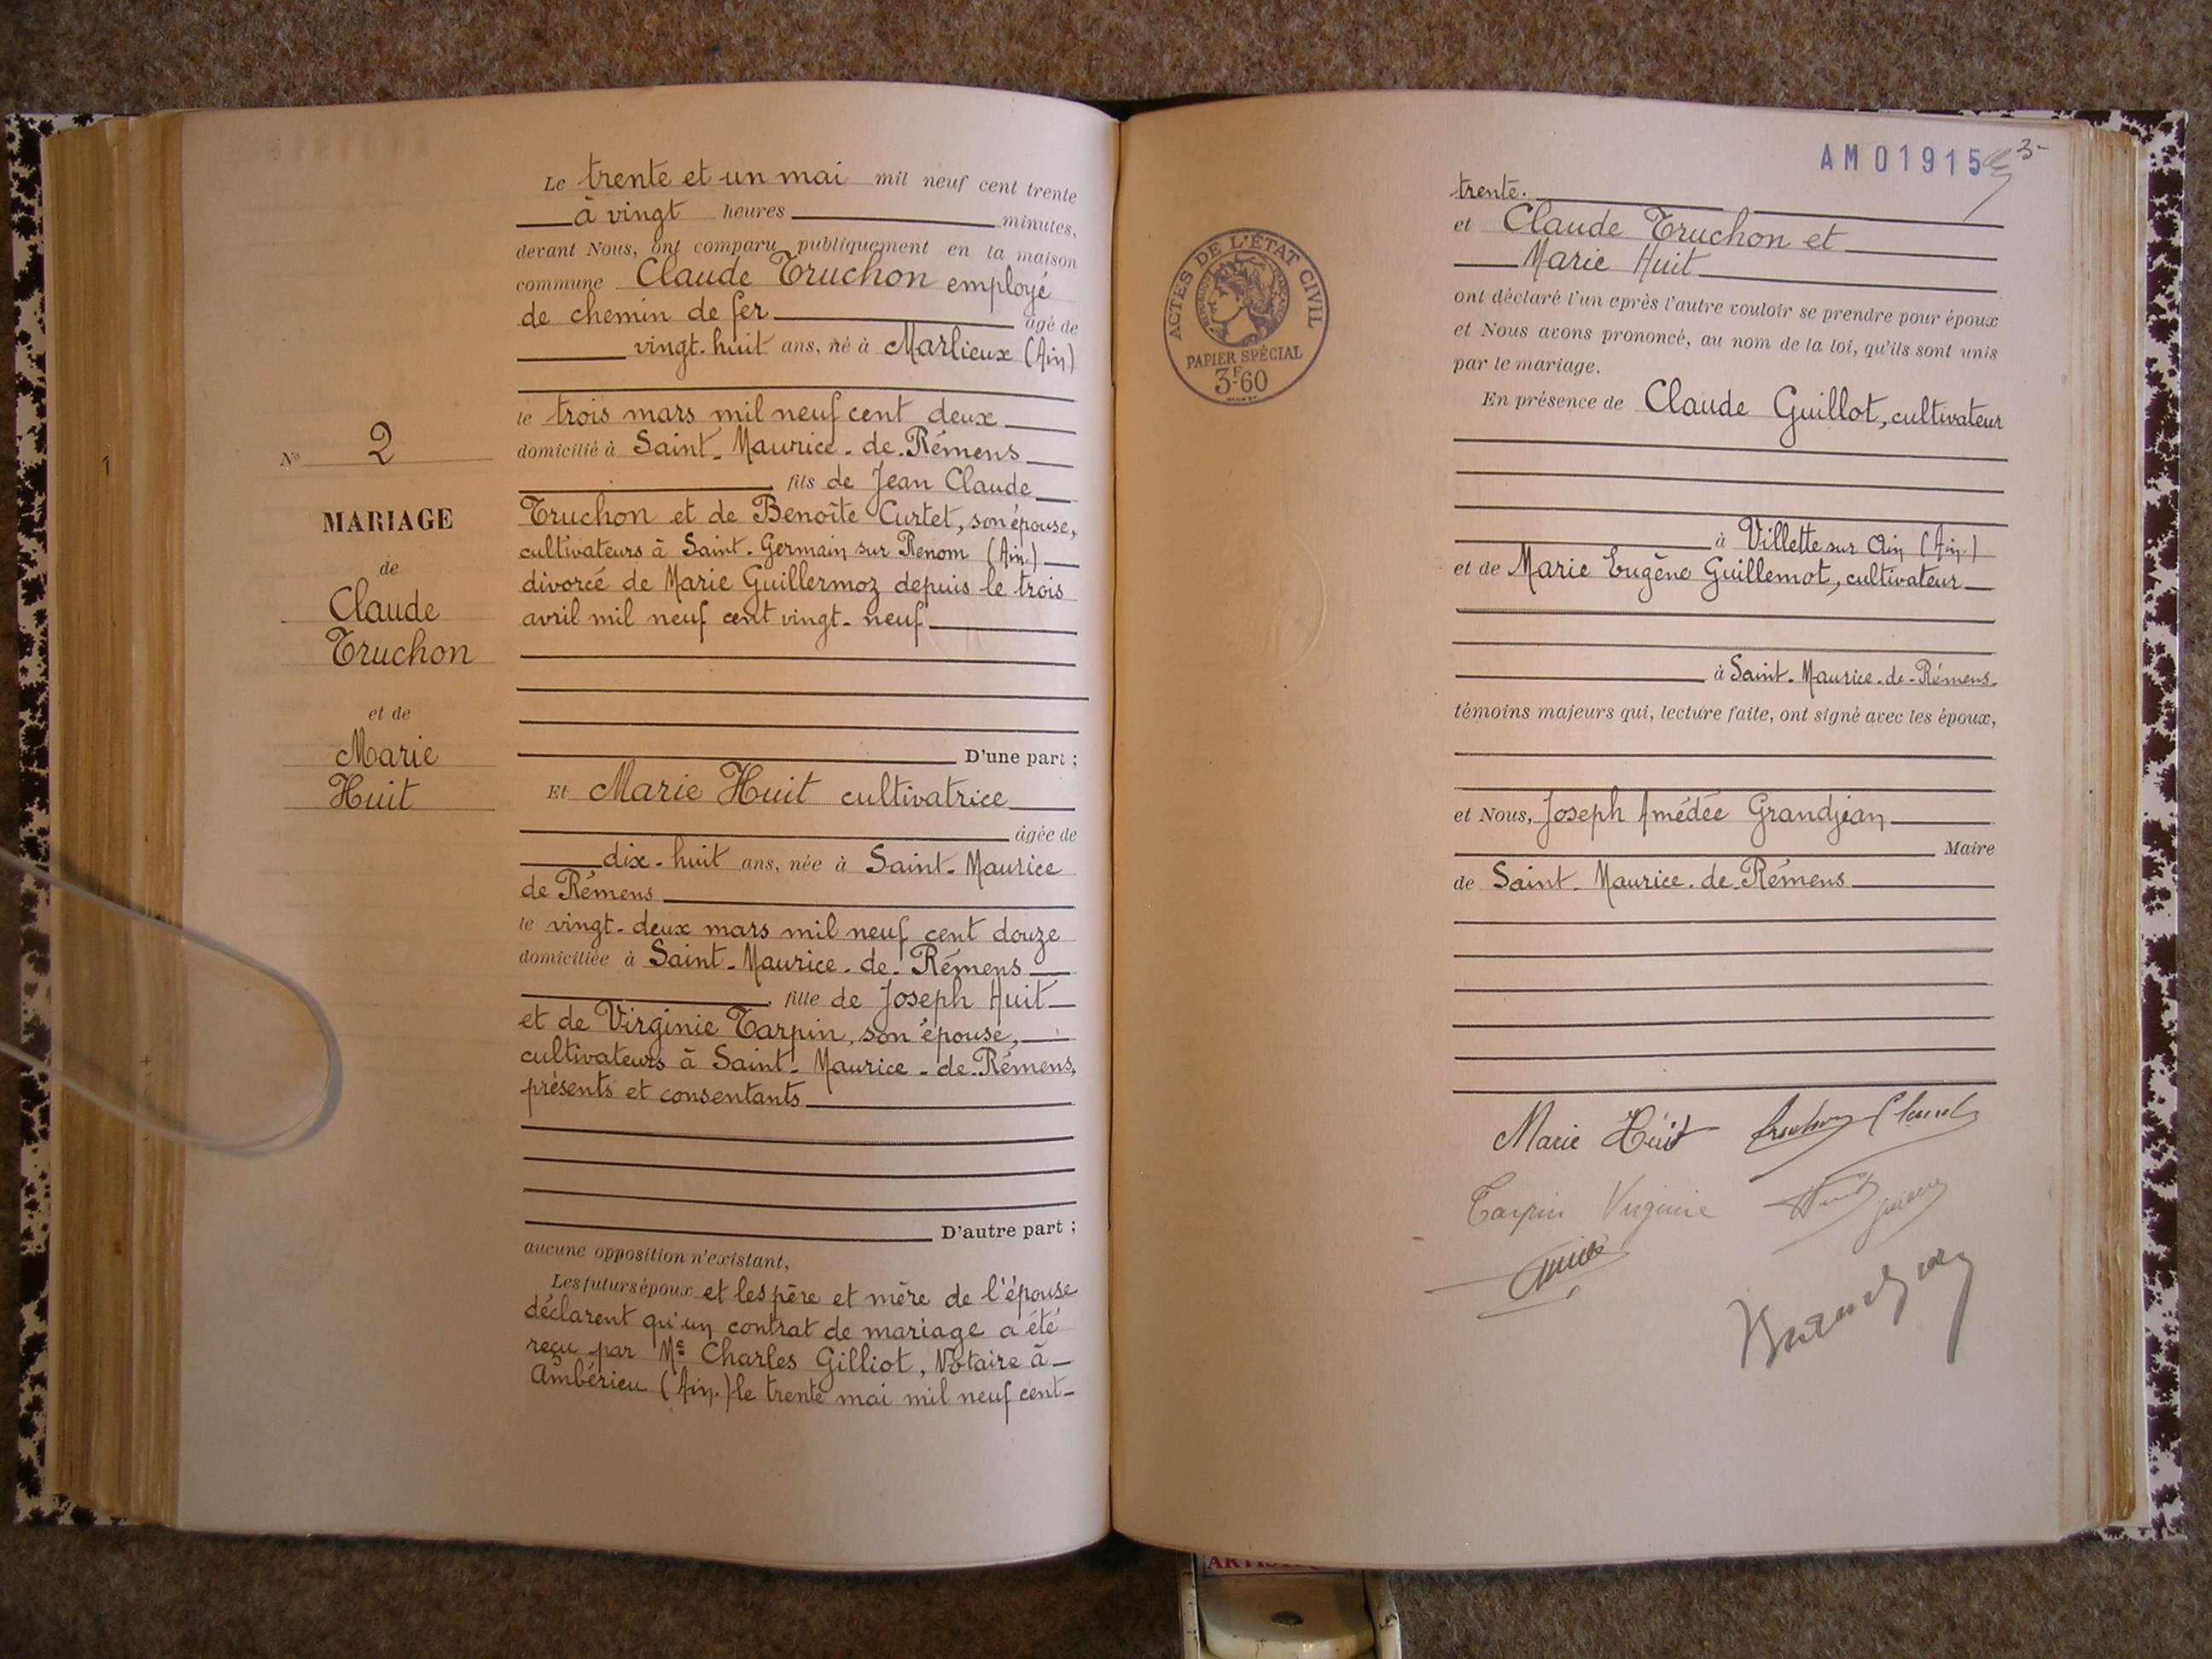 Le trente et un mai mil neuf cent trente
à vingt heures minutes,
devant Nous, ont comparu publiquement en la maison
commune Claude Truchon employé
de chemin de fer âgé de
vingt-huit ans, né à Marlieux (Ain)
le trois mars mil neuf cent deux
domicilié à Saint-Maurice-de-Rémens
fils de Jean Claude
Truchon et de Benoîte Curtet, son épouse,
cultivateurs à Saint-Germain sur Renom (Ain)
divorcé de Marie Guillermoz depuis le trois
avril mil neuf cent vingt-neuf
D'une part ;
Et Marie Huit cultivatrice
âgée de
dix-huit ans, née à Saint-Maurice
de Rémens
le vingt-deux mars mil neuf cent douze
domiciliée à Saint-Maurice-de-Rémens
fille de Joseph Huit
et de Virginie Tarpin, son épouse,
cultivateurs à Saint-Maurice-de-Rémens,
présents et consentants
D'autre part ;
aucune opposition n'existant,
Les futurs époux et les père et mère de l'épouse
déclarent qu'un contrat de mariage a été
reçu par Me Charles Gilliot, Notaire à
Ambérieu (Ain.) le trente mai mil neuf cent
N° 2
MARIAGE
de
Claude
Truchon
et de
Marie
Huit
1
AM 01915
3
trente.
et Claude Truchon et
Marie Huit
ont déclaré l'un après l'autre vouloir se prendre pour époux
et Nous avons prononcé, au nom de la loi, qu'ils sont unis
par le mariage.
En présence de Claude Guillot, cultivateur
à Villette sur Ain (Ain)
et de Marie Eugène Guillemot, cultivateur
à Saint-Maurice-de-Rémens.
témoins majeurs qui, lecture faite, ont signé avec les époux,
et Nous, Joseph Amédée Grandjean
Maire
de Saint-Maurice-de-Rémens
Marie Huit Truchon Claude
Tarpin Virginie Huit
Grandjean
ACTES DE L'ÉTAT CIVIL
RÉPUBLIQUE FRANÇAISE
PAPIER SPÉCIAL
3F60